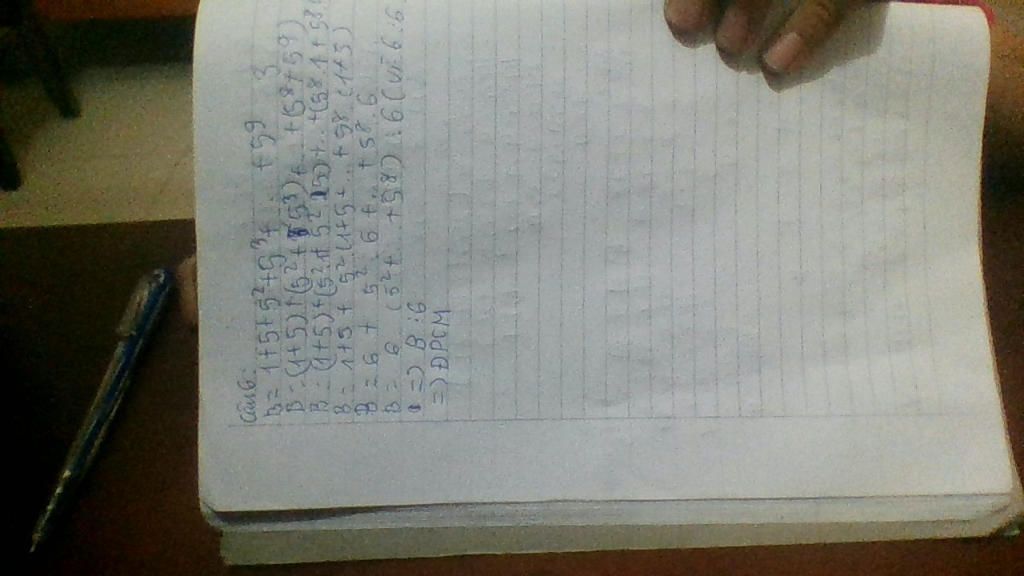 Câu 6:
B = 1+5+5²+5³+... +5⁹
B = (1+5)+(5²+5³)+... +(5⁸+5⁹)
B = (1+5)+(5².1+5².5)+...+(5⁸.1+5⁸.
B = 1+5 + 5²(1+5)+... +5⁸(1+5)
B = 6 + 5².6+...+5⁸.6
B = 6 (5²+ +5⁸) ⋮ 6 (vì 6⋮6
=) B ⋮ 6
=) ĐPCM